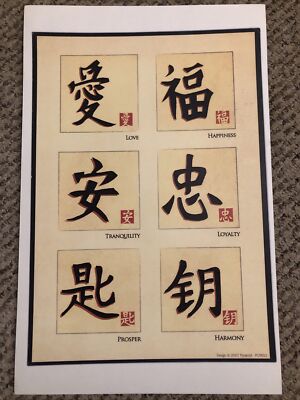 愛 愛
LOVE
福 福
HAPPINESS
安 安
TRANQUILITY
忠 忠
LOYALTY
匙 匙
PROSPER
钥 钥
HARMONY